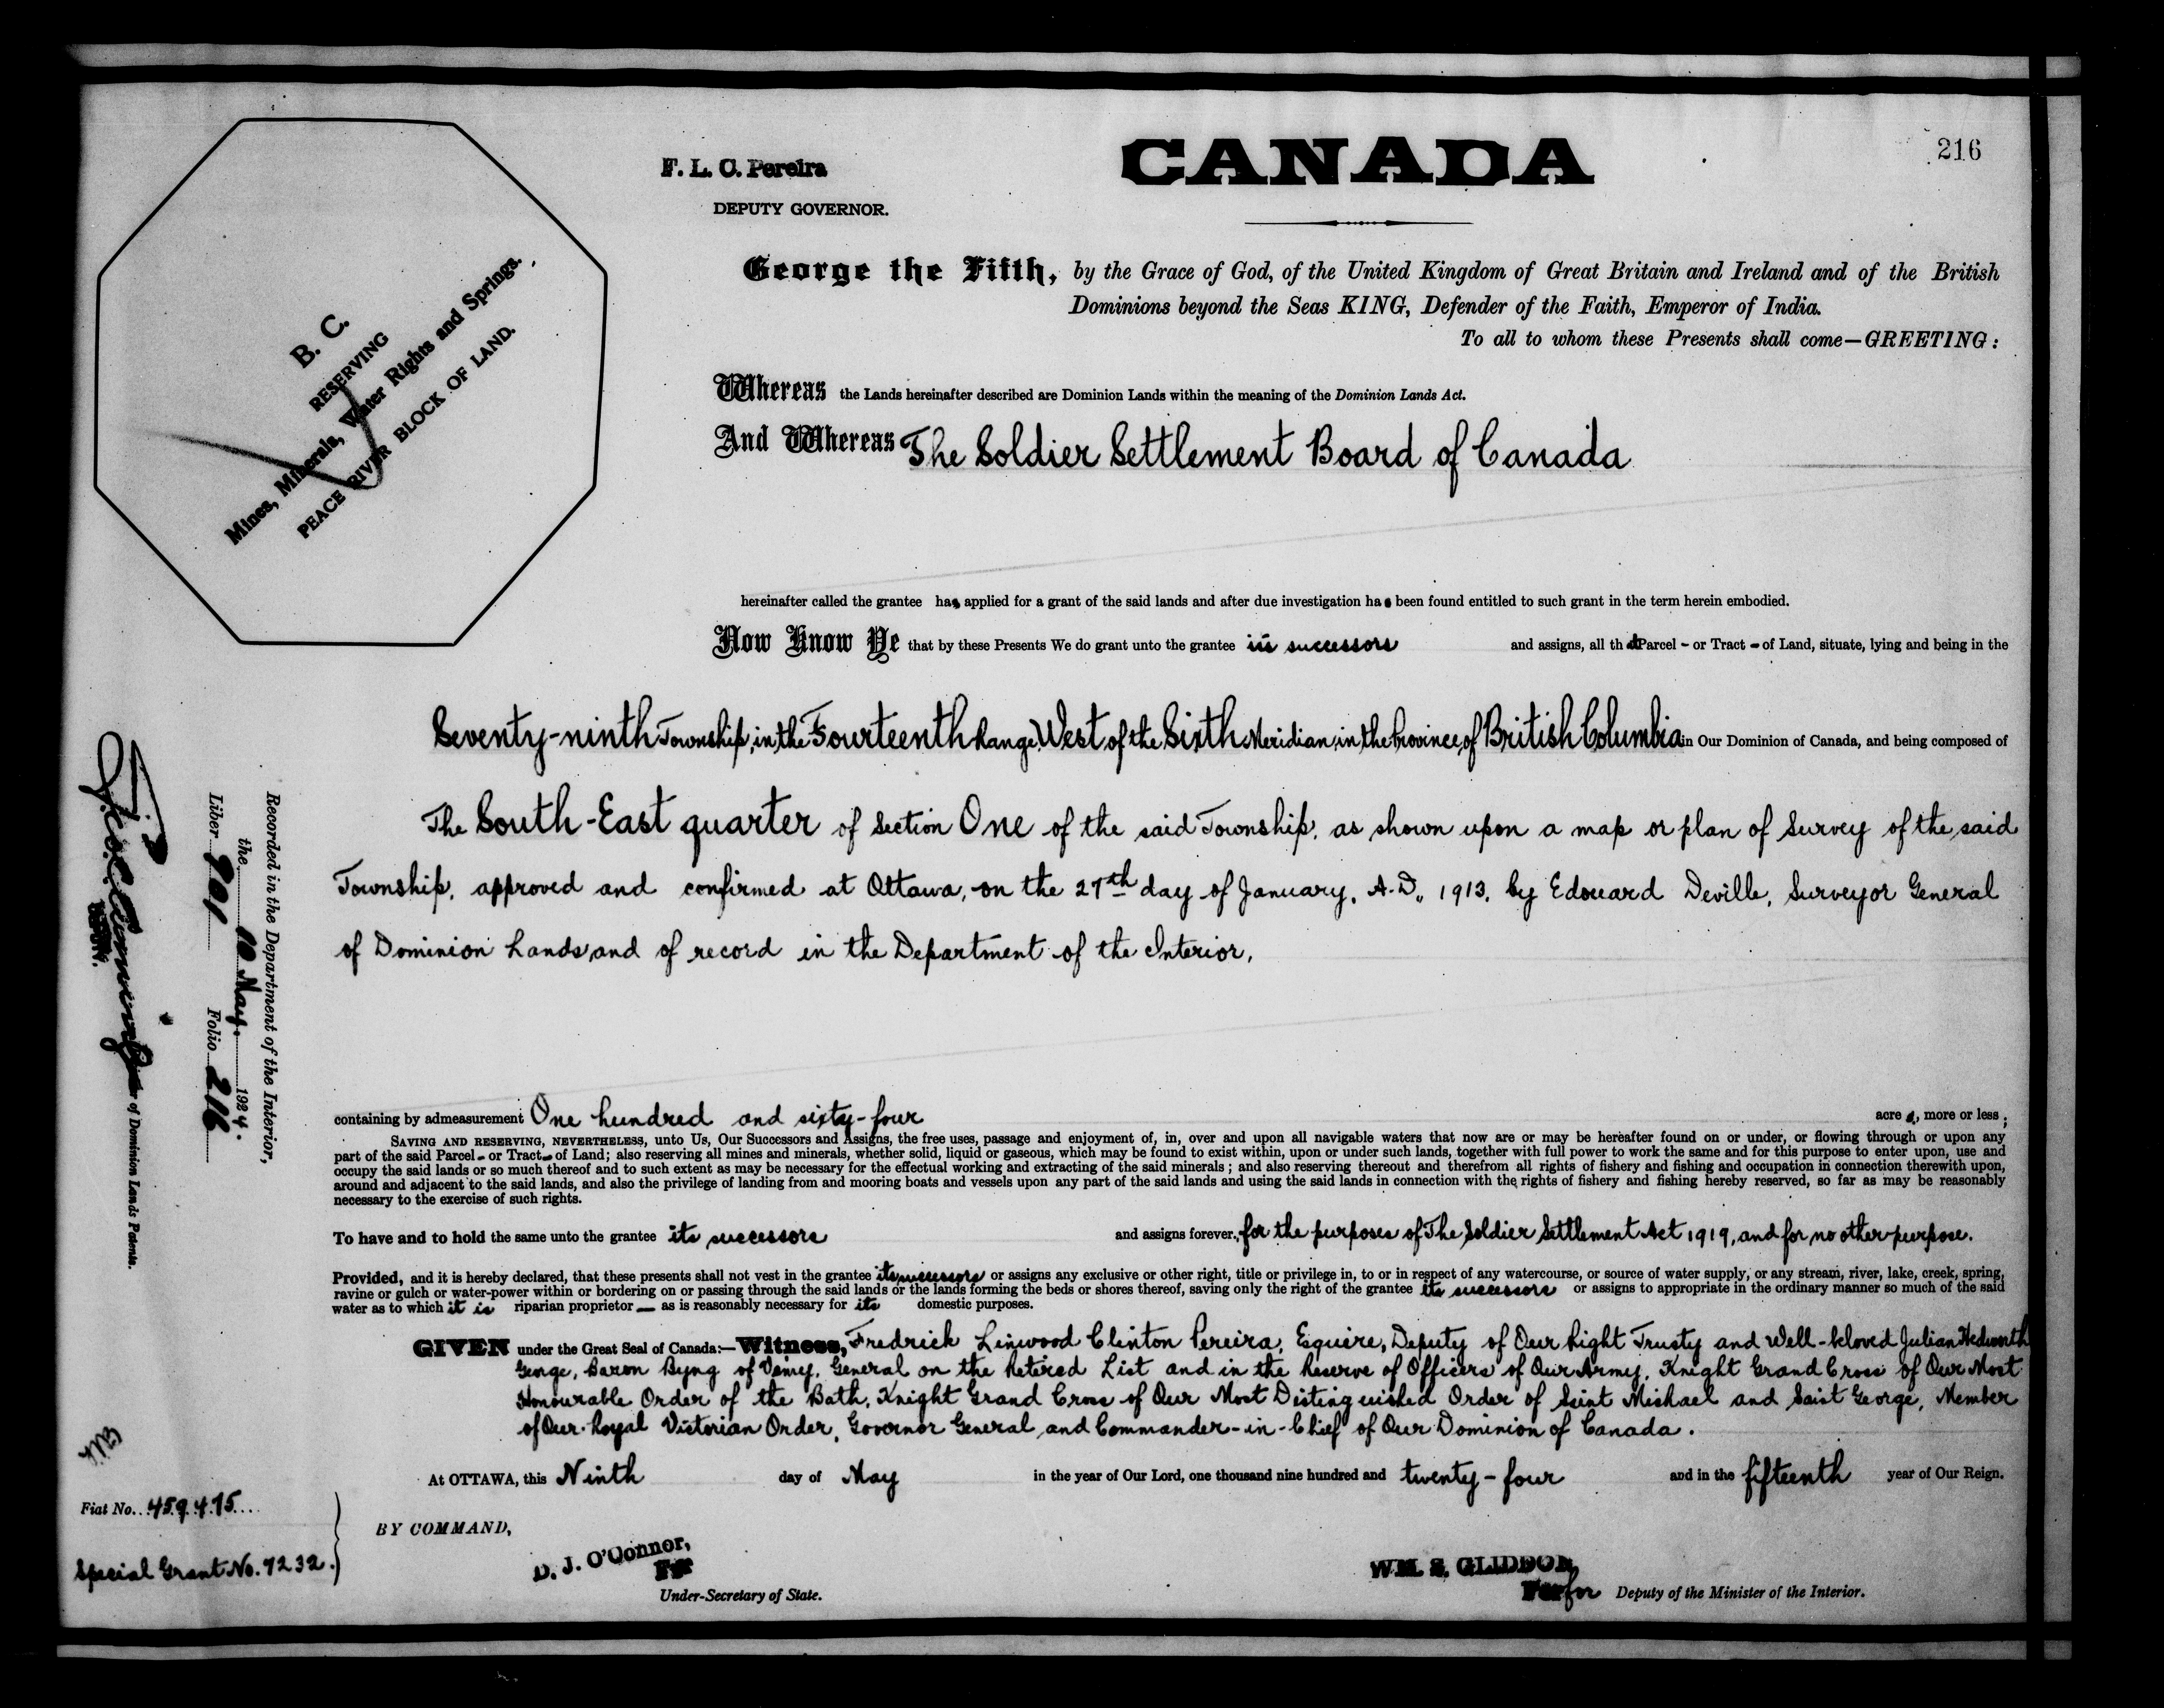 216
F. L. C. Pereira
DEPUTY GOVERNOR.
CANADA
B. C.
RESERVING
Mines, Minerals, Water Rights and Springs.
PEACE RIVER BLOCK OF LAND.
George the Fifth, by the Grace of God, of the United Kingdom of Great Britain and Ireland and of the British
Dominions beyond the Seas KING, Defender of the Faith, Emperor of India.
To all to whom these Presents shall come—GREETING:
Whereas the Lands hereinafter described are Dominion Lands within the meaning of the Dominion Lands Act.
And Whereas The Soldier Settlement Board of Canada
hereinafter called the grantee has applied for a grant of the said lands and after due investigation has been found entitled to such grant in the term herein embodied.
Now Know Ye that by these Presents We do grant unto the grantee its successors and assigns, all that Parcel - or Tract - of Land, situate, lying and being in the
Seventy-ninth Township, in the Fourteenth Range, West of the Sixth Meridian, in the Province of British Columbia in Our Dominion of Canada, and being composed of
The South-East quarter of Section One of the said Township, as shown upon a map or plan of Survey of the said
Township, approved and confirmed at Ottawa, on the 27th day of January, A.D., 1913, by Edouard Deville, Surveyor General
of Dominion Lands, and of record in the Department of the Interior,
containing by admeasurement One hundred and sixty-four acres, more or less;
SAVING AND RESERVING, NEVERTHELESS, unto Us, Our Successors and Assigns, the free uses, passage and enjoyment of, in, over and upon all navigable waters that now are or may be hereafter found on or under, or flowing through or upon any
part of the said Parcel - or Tract - of Land; also reserving all mines and minerals, whether solid, liquid or gaseous, which may be found to exist within, upon or under such lands, together with full power to work the same and for this purpose to enter upon, use and
occupy the said lands or so much thereof and to such extent as may be necessary for the effectual working and extracting of the said minerals; and also reserving thereout and therefrom all rights of fishery and fishing and occupation in connection therewith upon,
around and adjacent to the said lands, and also the privilege of landing from and mooring boats and vessels upon any part of the said lands and using the said lands in connection with the rights of fishery and fishing hereby reserved, so far as may be reasonably
necessary to the exercise of such rights.
To have and to hold the same unto the grantee its successors and assigns forever, for the purposes of The Soldier Settlement Act 1919, and for no other purpose.
Provided, and it is hereby declared, that these presents shall not vest in the grantee its successors or assigns any exclusive or other right, title or privilege in, to or in respect of any watercourse, or source of water supply, or any stream, river, lake, creek, spring,
ravine or gulch or water-power within or bordering on or passing through the said lands or the lands forming the beds or shores thereof, saving only the right of the grantee its successors or assigns to appropriate in the ordinary manner so much of the said
water as to which it is riparian proprietor — as is reasonably necessary for its domestic purposes.
GIVEN under the Great Seal of Canada:—Witness, Fredrick Linwood Clinton Pereira, Equire, Deputy of Our Right Trusty and Well-beloved Julian Hedworth
George, Baron Byng of Vimy, General on the Retired List and in the Reserve of Officers of Our Army, Knight Grand Cross of Our Most
Honourable Order of the Bath, Knight Grand Cross of Our Most Distinguished Order of Saint Michael and Saint George, Member
of Our Royal Victorian Order, Governor General and Commander-in-Chief of Our Dominion of Canada.
At OTTAWA, this Ninth day of May in the year of Our Lord, one thousand nine hundred and twenty-four and in the fifteenth year of Our Reign.
BY COMMAND,
D. J. O'Connor,
For
Under-Secretary of State.
WM. S. GLIDDON,
For for Deputy of the Minister of the Interior.
Recorded in the Department of the Interior,
the 10 May. 1924.
Liber 901 Folio 216
of Dominion Lands Patents.
Fiat No. 459475
Special Grant No. 7232.